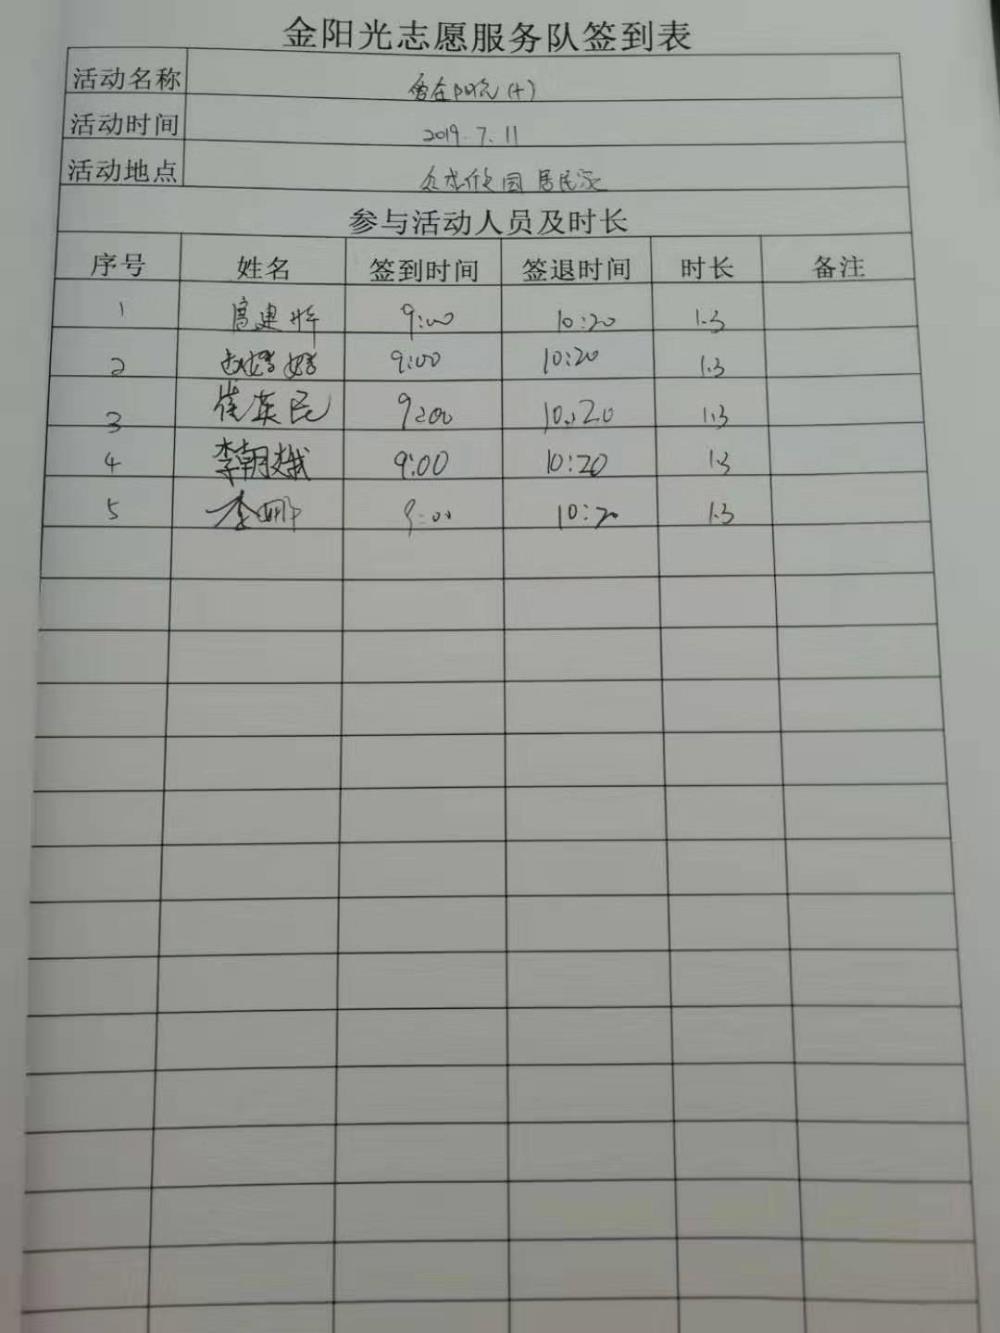 金阳光志愿服务队签到表
活动名称
活动时间 2019.7.11
活动地点 花园居民家
参与活动人员及时长
序号 姓名 签到时间 签退时间 时长 备注
1 高建 9:00 10:20 1.3
2 赵婷婷 9:00 10:20 1.3
3 崔英民 9:00 10:20 1.3
4 李朝娥 9:00 10:20 1.3
5 李娜 9:00 10:20 1.3